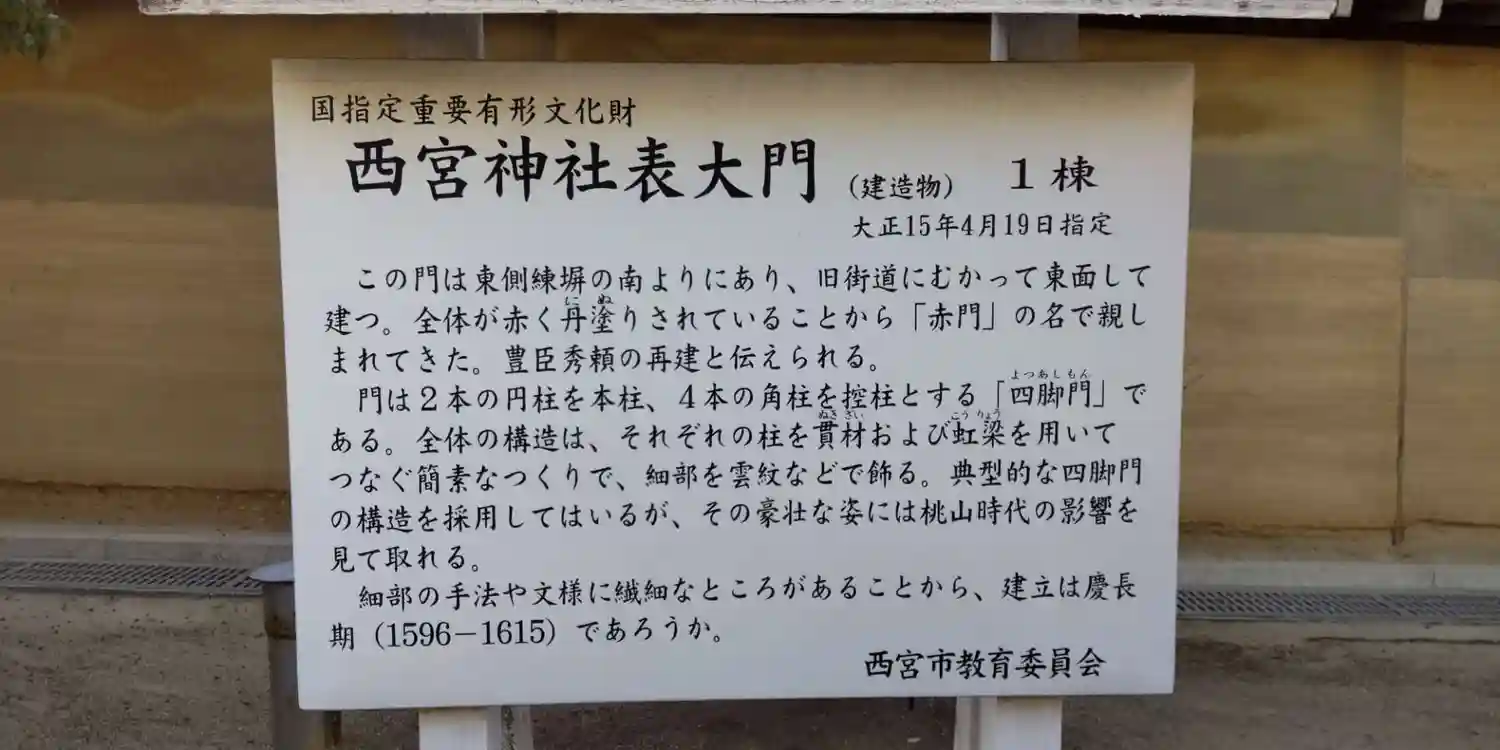 国指定重要有形文化財
西宮神社表大門 （建造物） 1棟
大正15年4月19日指定
この門は東側練塀の南よりにあり、旧街道にむかって東面して
建つ。全体が赤く丹塗りされていることから「赤門」の名で親し
まれてきた。豊臣秀頼の再建と伝えられる。
門は2本の円柱を本柱、4本の角柱を控柱とする「四脚門」で
ある。全体の構造は、それぞれの柱を貫材および虹梁を用いて
つなぐ簡素なつくりで、細部を雲紋などで飾る。典型的な四脚門
の構造を採用してはいるが、その豪壮な姿には桃山時代の影響を
見て取れる。
細部の手法や文様に繊細なところがあることから、建立は慶長
期（1596－1615）であろうか。
西宮市教育委員会